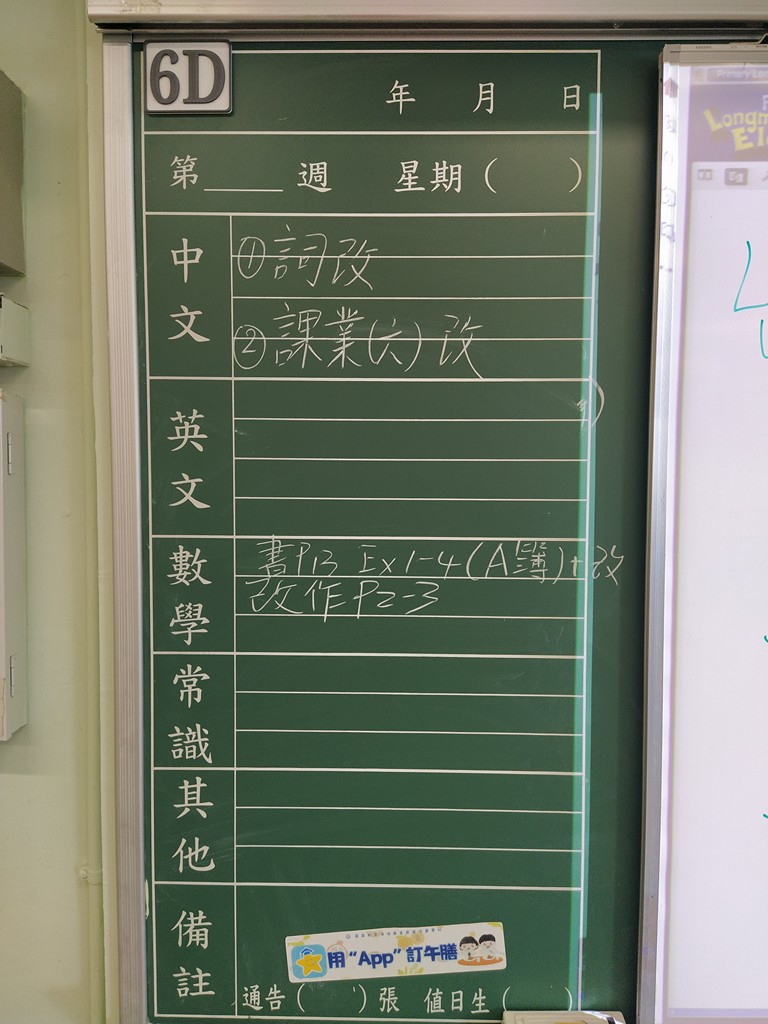 6D
年 月 日
第____週 星期( )
中文
①詞改
②課業(六)改
英文
數學
書P13 Ex1-4(A簿)+改
改作P2-3
常識
其他
備註
用“App”訂午膳
通告( )張 值日生( )
Primary Lon
Longm